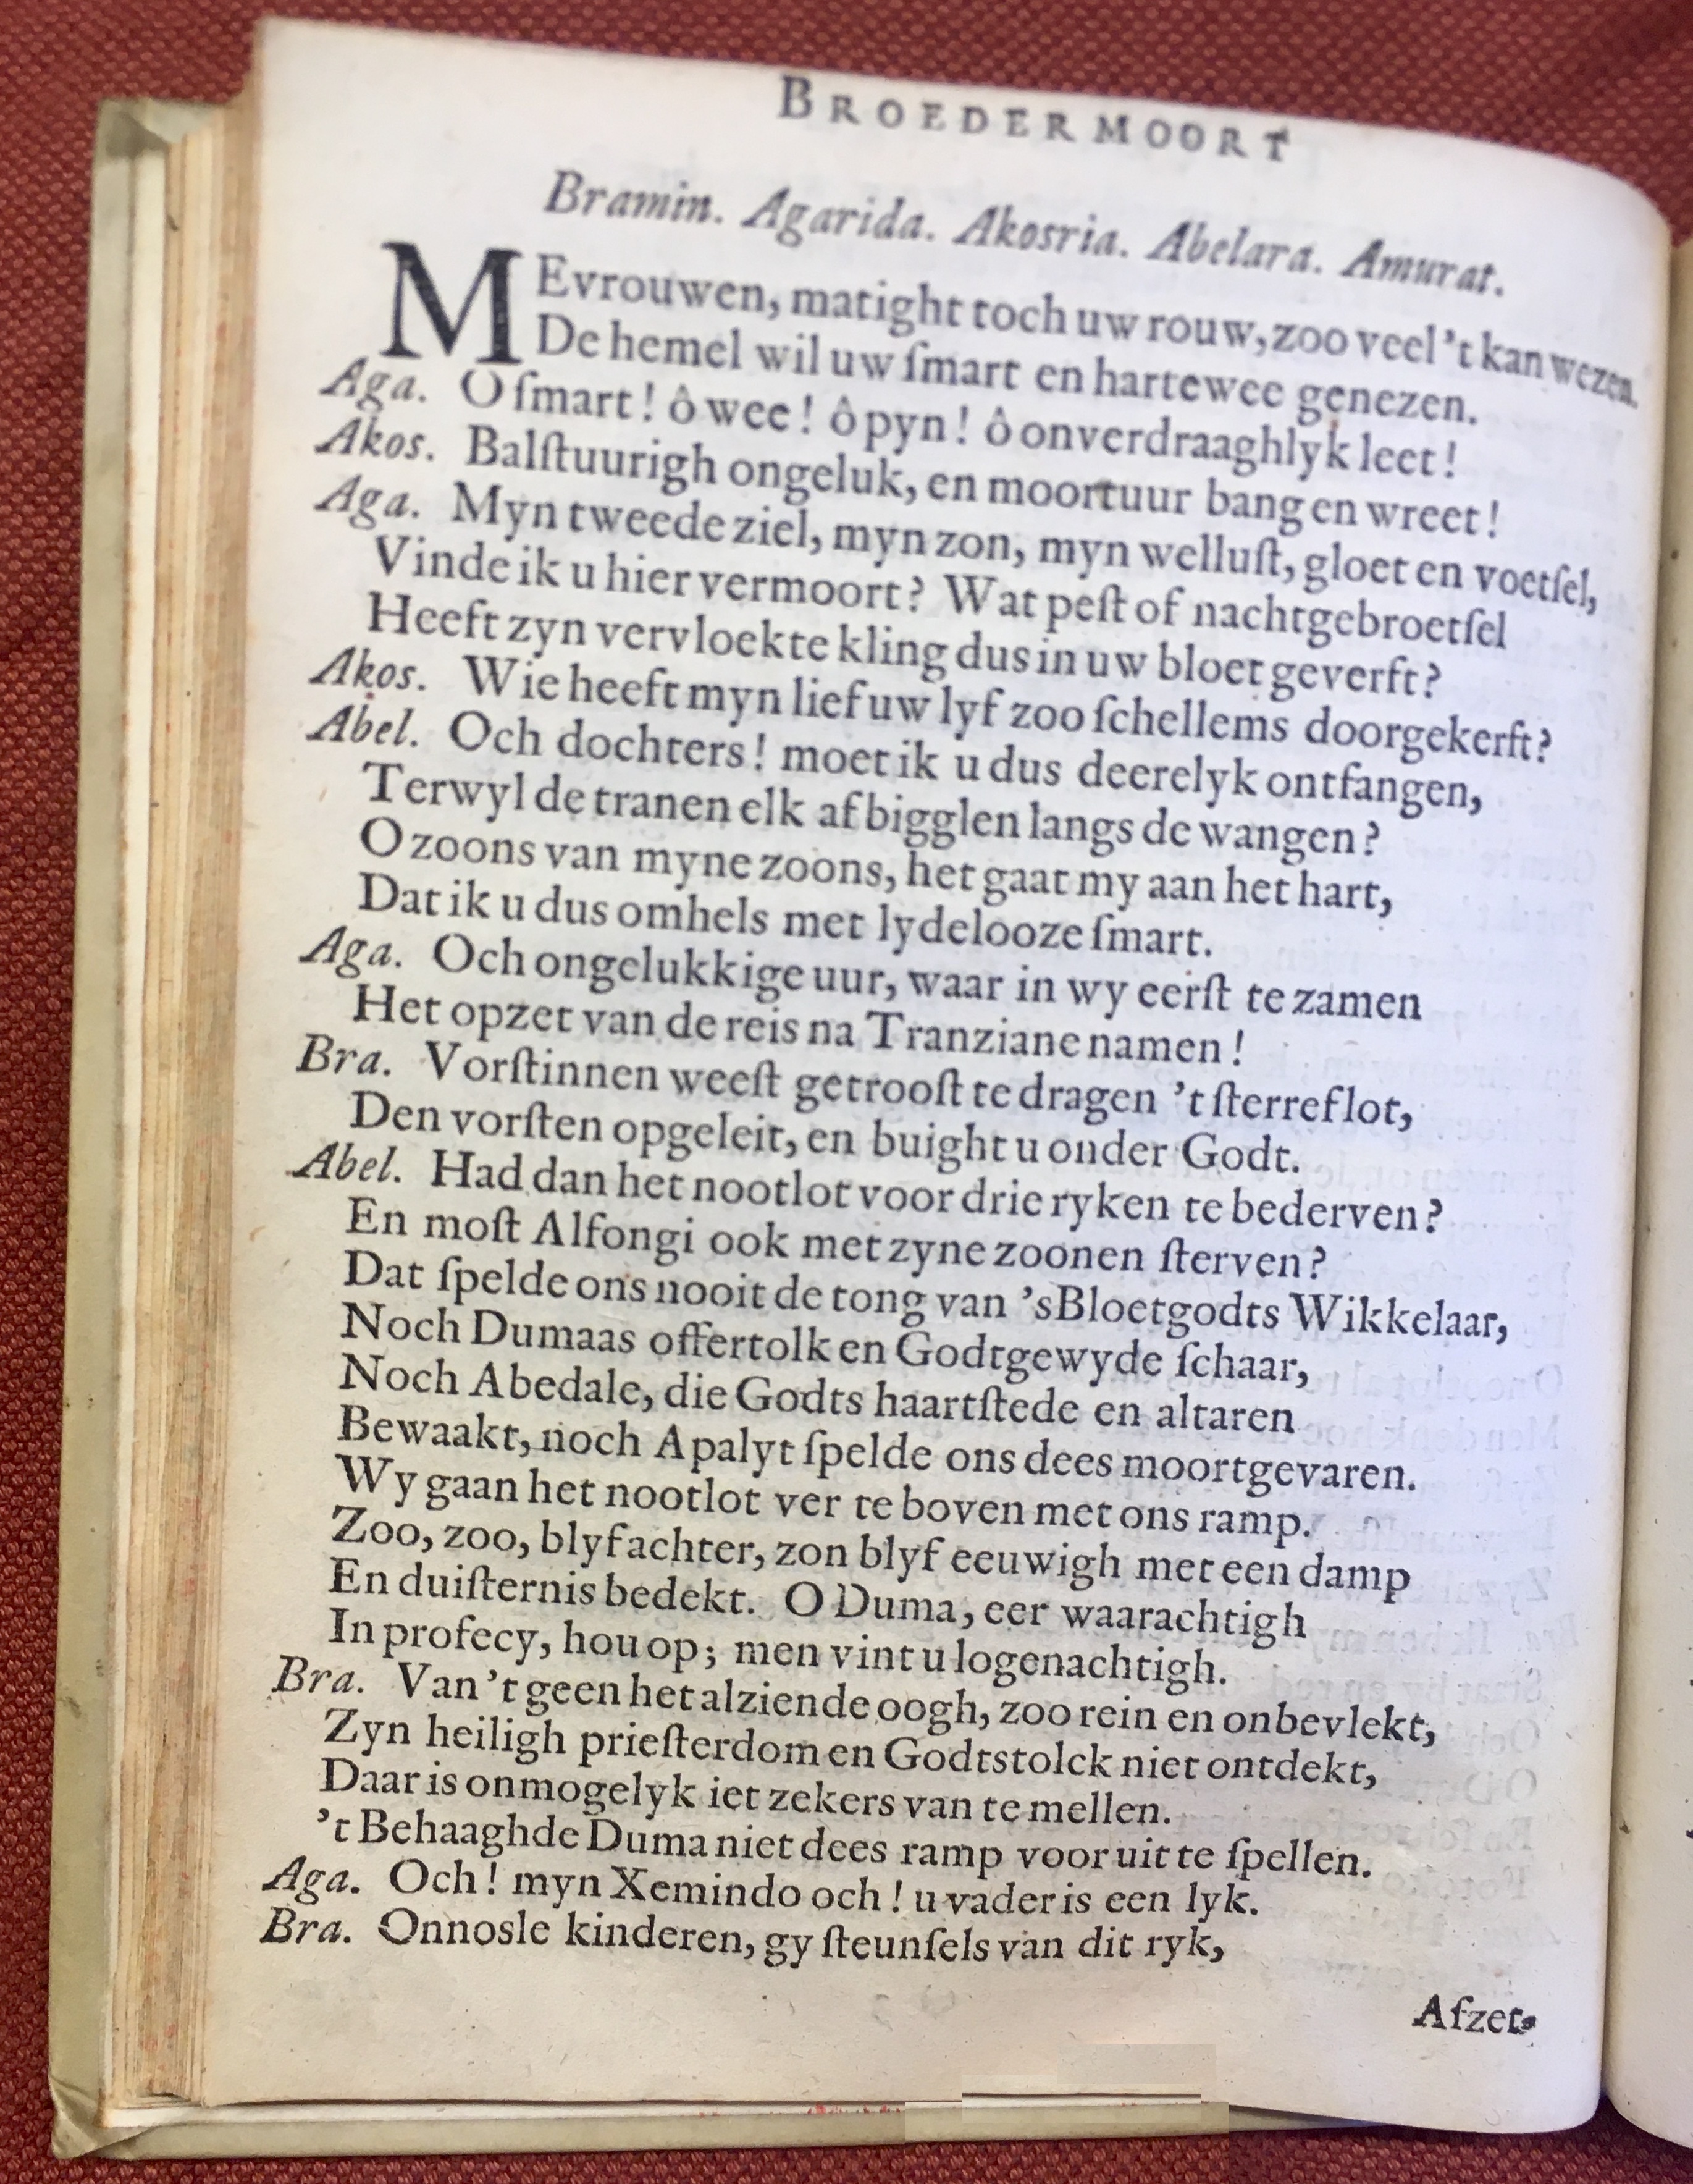 BROEDERMOORT
Bramin. Agarida. Akosria. Abelara. Amurat.
MEvrouwen, matight toch uw rouw, zoo veel 't kan wezen.
De hemel wil uw ſmart en hartewee genezen.
Aga. O ſmart! ô wee! ô pyn! ô onverdraaghlyk leet!
Akos. Balſtuurigh ongeluk, en moortuur bang en wreet!
Aga. Myn tweede ziel, myn zon, myn welluſt, gloet en voetſel,
Vinde ik u hier vermoort? Wat peſt of nachtgebroetſel
Heeft zyn vervloekte kling dus in uw bloet geverft?
Akos. Wie heeft myn lief uw lyf zoo ſchellems doorgekerft?
Abel. Och dochters! moet ik u dus deerelyk ontfangen,
Terwyl de tranen elk afbigglen langs de wangen?
O zoons van myne zoons, het gaat my aan het hart,
Dat ik u dus omhels met lydelooze ſmart.
Aga. Och ongelukkige uur, waar in wy eerſt te zamen
Het opzet van de reis na Tranziane namen!
Bra. Vorſtinnen weeſt getrooſt te dragen 't ſterreflot,
Den vorſten opgeleit, en buight u onder Godt.
Abel. Had dan het nootlot voor drie ryken te bederven?
En moſt Alfongi ook met zyne zoonen ſterven?
Dat ſpelde ons nooit de tong van 'sBloetgodts Wikkelaar,
Noch Dumaas offertolk en Godtgewyde ſchaar,
Noch Abedale, die Godts haartſtede en altaren
Bewaakt, noch Apalyt ſpelde ons dees moortgevaren.
Wy gaan het nootlot ver te boven met ons ramp.
Zoo, zoo, blyf achter, zon blyf eeuwigh met een damp
En duiſternis bedekt. O Duma, eer waarachtigh
In profecy, hou op; men vint u logenachtigh.
Bra. Van 't geen het alziende oogh, zoo rein en onbevlekt,
Zyn heiligh prieſterdom en Godtstolck niet ontdekt,
Daar is onmogelyk iet zekers van te mellen.
't Behaaghde Duma niet dees ramp voor uit te ſpellen.
Aga. Och! myn Xemindo och! u vader is een lyk.
Bra. Onnosle kinderen, gy ſteunſels van dit ryk,
Afzet-